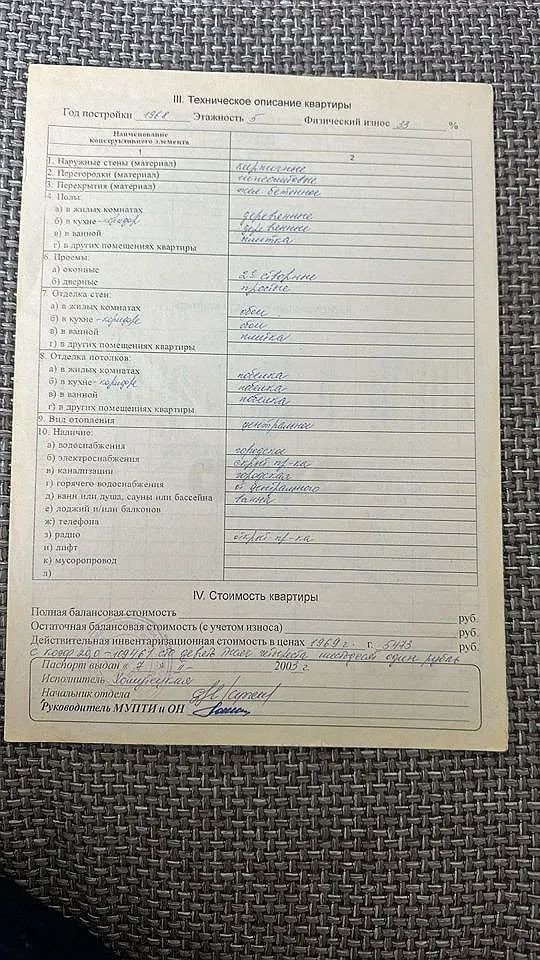 III. Техническое описание квартиры
Год постройки 1968 Этажность 5 Физический износ 33 %
Наименование конструктивного элемента
1 2
1. Наружные стены (материал) кирпичные
2. Перегородки (материал) гипсолитовые
3. Перекрытия (материал) жел. бетонное
4. Полы:
а) в жилых комнатах деревянные
б) в кухне - коридор деревянные
в) в ванной плитка
г) в других помещениях квартиры
6. Проемы:
а) оконные 2х створные
б) дверные простые
7 Отделка стен:
а) в жилых комнатах обои
б) в кухне - коридоре обои
в) в ванной плитка
г) в других помещениях квартиры
8. Отделка потолков:
а) в жилых комнатах побелка
б) в кухне - коридоре побелка
в) в ванной побелка
г) в других помещениях квартиры
9. Вид отопления центральное
10. Наличие:
а) водоснабжения городское
б) электроснабжения скрыт пр-ка
в) канализации городская
г) горячего водоснабжения от центрального
д) ванн или душа, сауны или бассейна ванна
е) лоджий и/или балконов
ж) телефона
з) радио открыт пр-ка
и) лифт
к) мусоропровод
л)
IV. Стоимость квартиры
Полная балансовая стоимость руб.
Остаточная балансовая стоимость (с учетом износа) руб.
Действительная инвентаризационная стоимость в ценах 1969 г. г. 5473 руб.
с коэф 20,0 - 109461 сто девять тысяч четыреста шестьдесят один рубль
Паспорт выдан « 7 » 2003 г.
Исполнитель
Начальник отдела
Руководитель МУПТИ и ОН